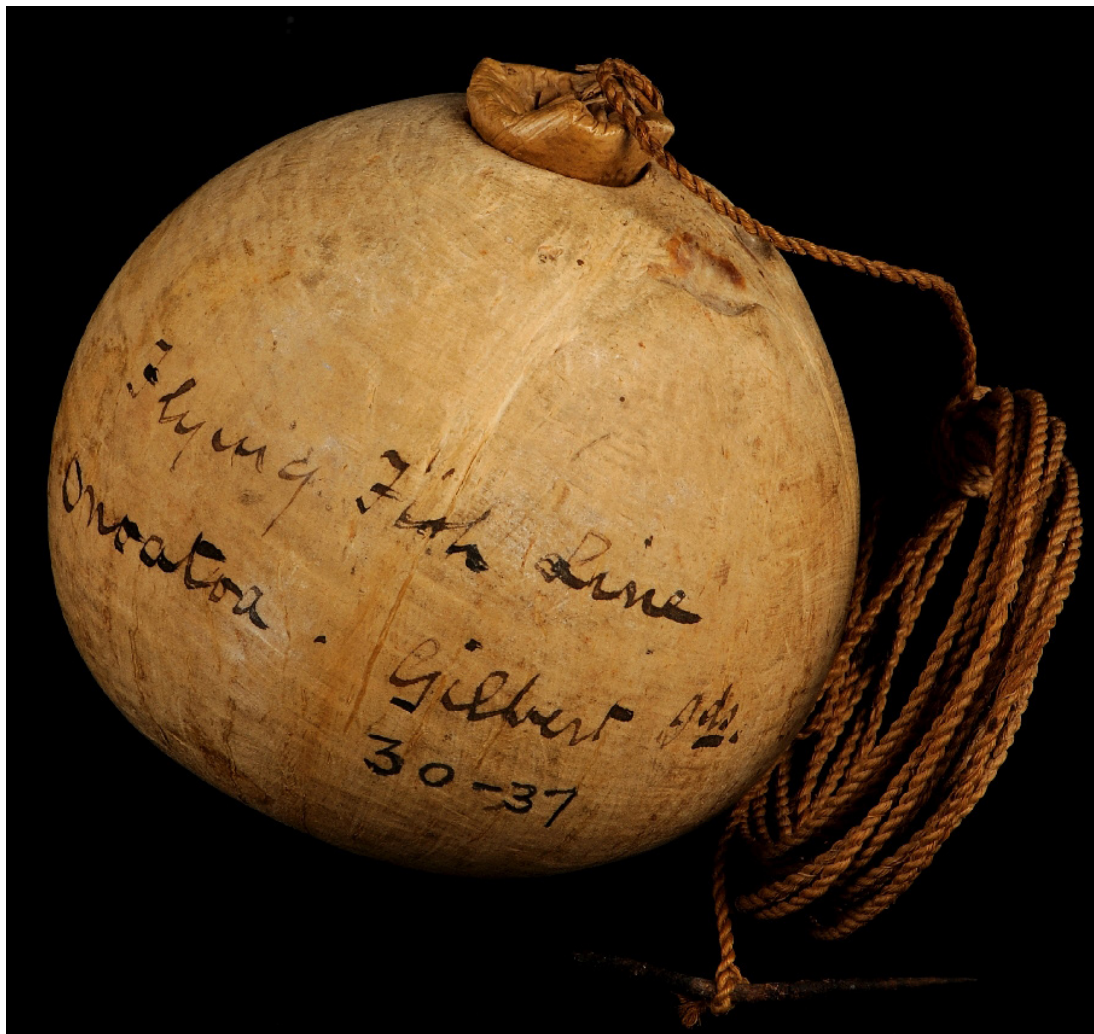 Flying Fish Line
Onoatoa. Gilbert Ids.
30-37